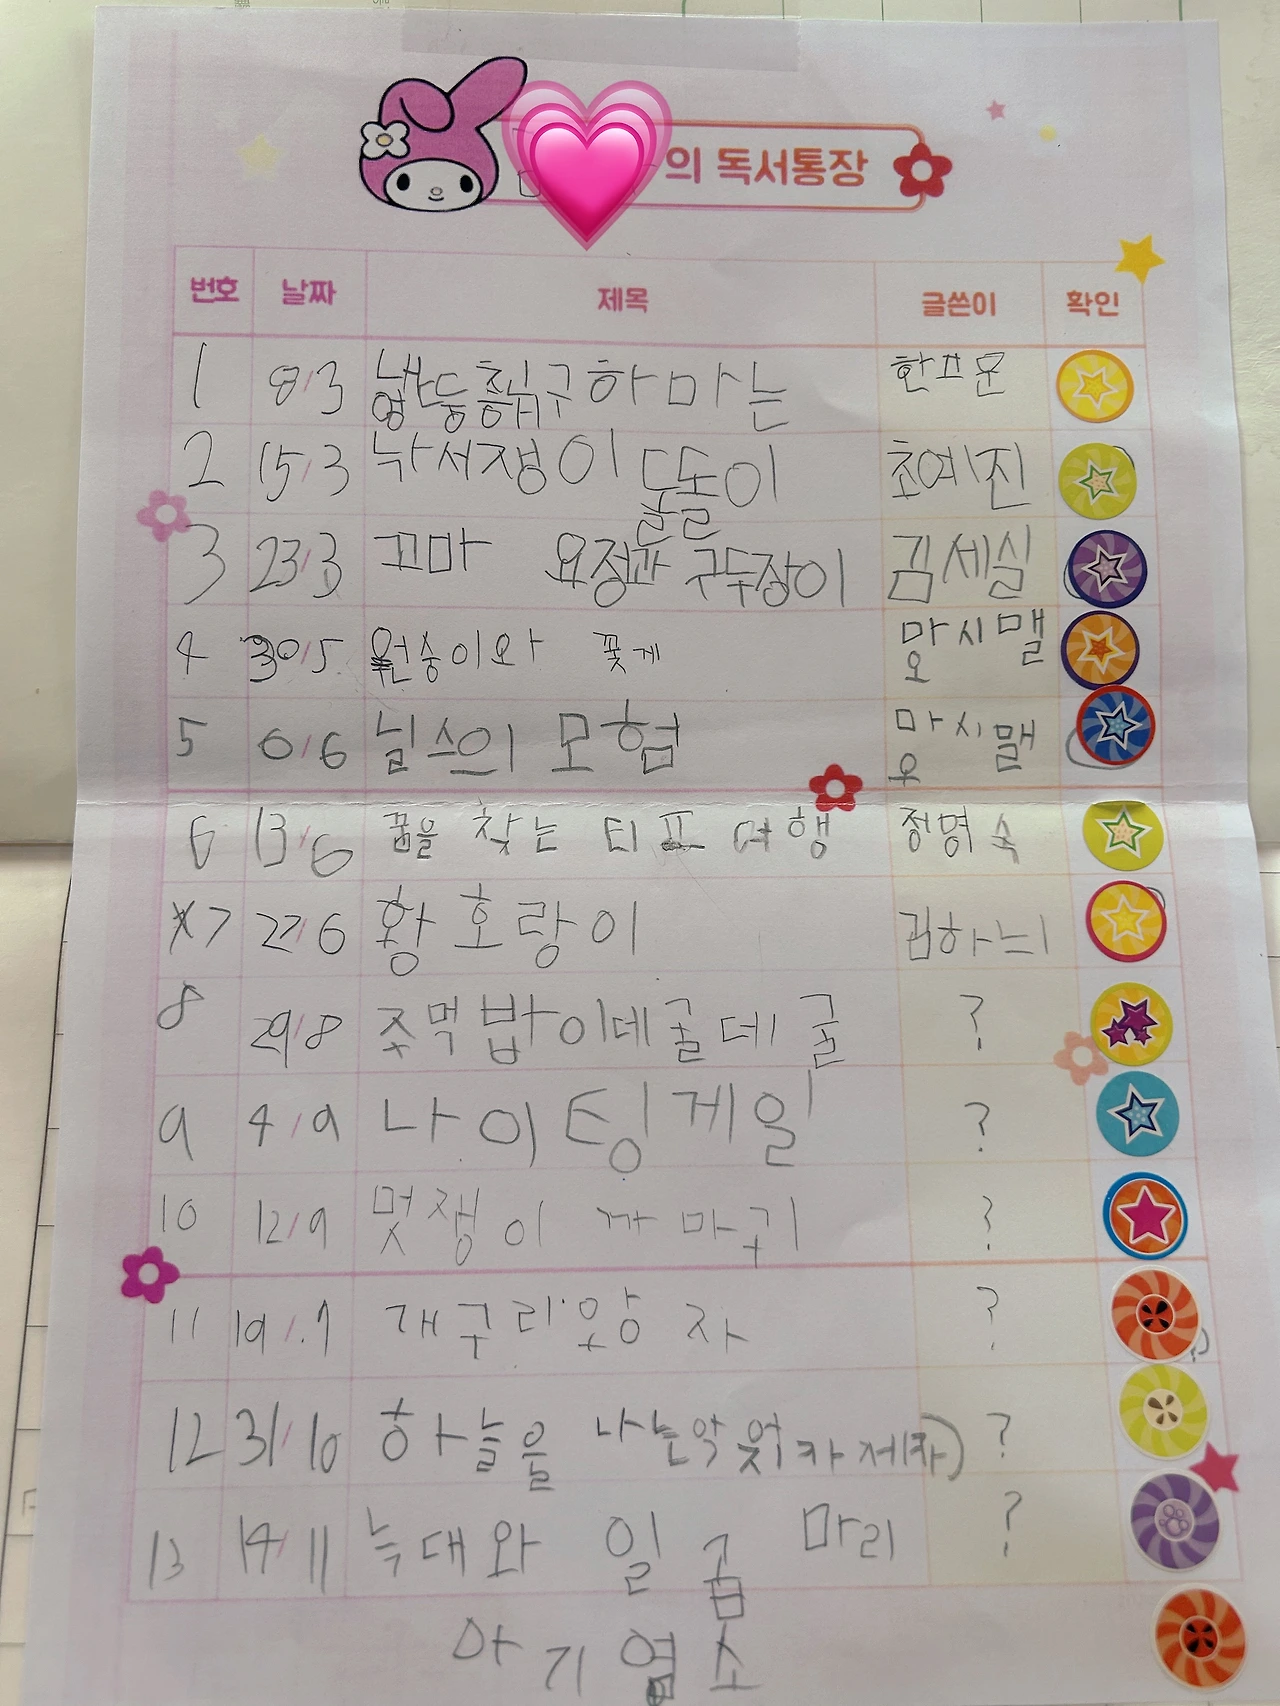 의 독서통장
번호 날짜 제목 글쓴이 확인
1 8/3 구하마는
2 15/3 낙서쟁이 돌돌이 초예진
3 23/3 꼬마 요정과 구두장이 김세실
4 30/5 원숭이와 꽃게 시맬
5 6/6 닐스의 모험 시맬
6 13/6 꿈을 찾는 티표 여행 정명숙
7 22/6 황호랑이 김하늬
8 29/8 주먹밥이데굴데굴 ?
9 4/9 나이팅게일 ?
10 12/9 멋쟁이 까마귀 ?
11 19/.9 개구리왕자 ?
12 31/10 하늘을 나는 ?
13 14/11 늑대와 일곱 마리 ?
아기염소